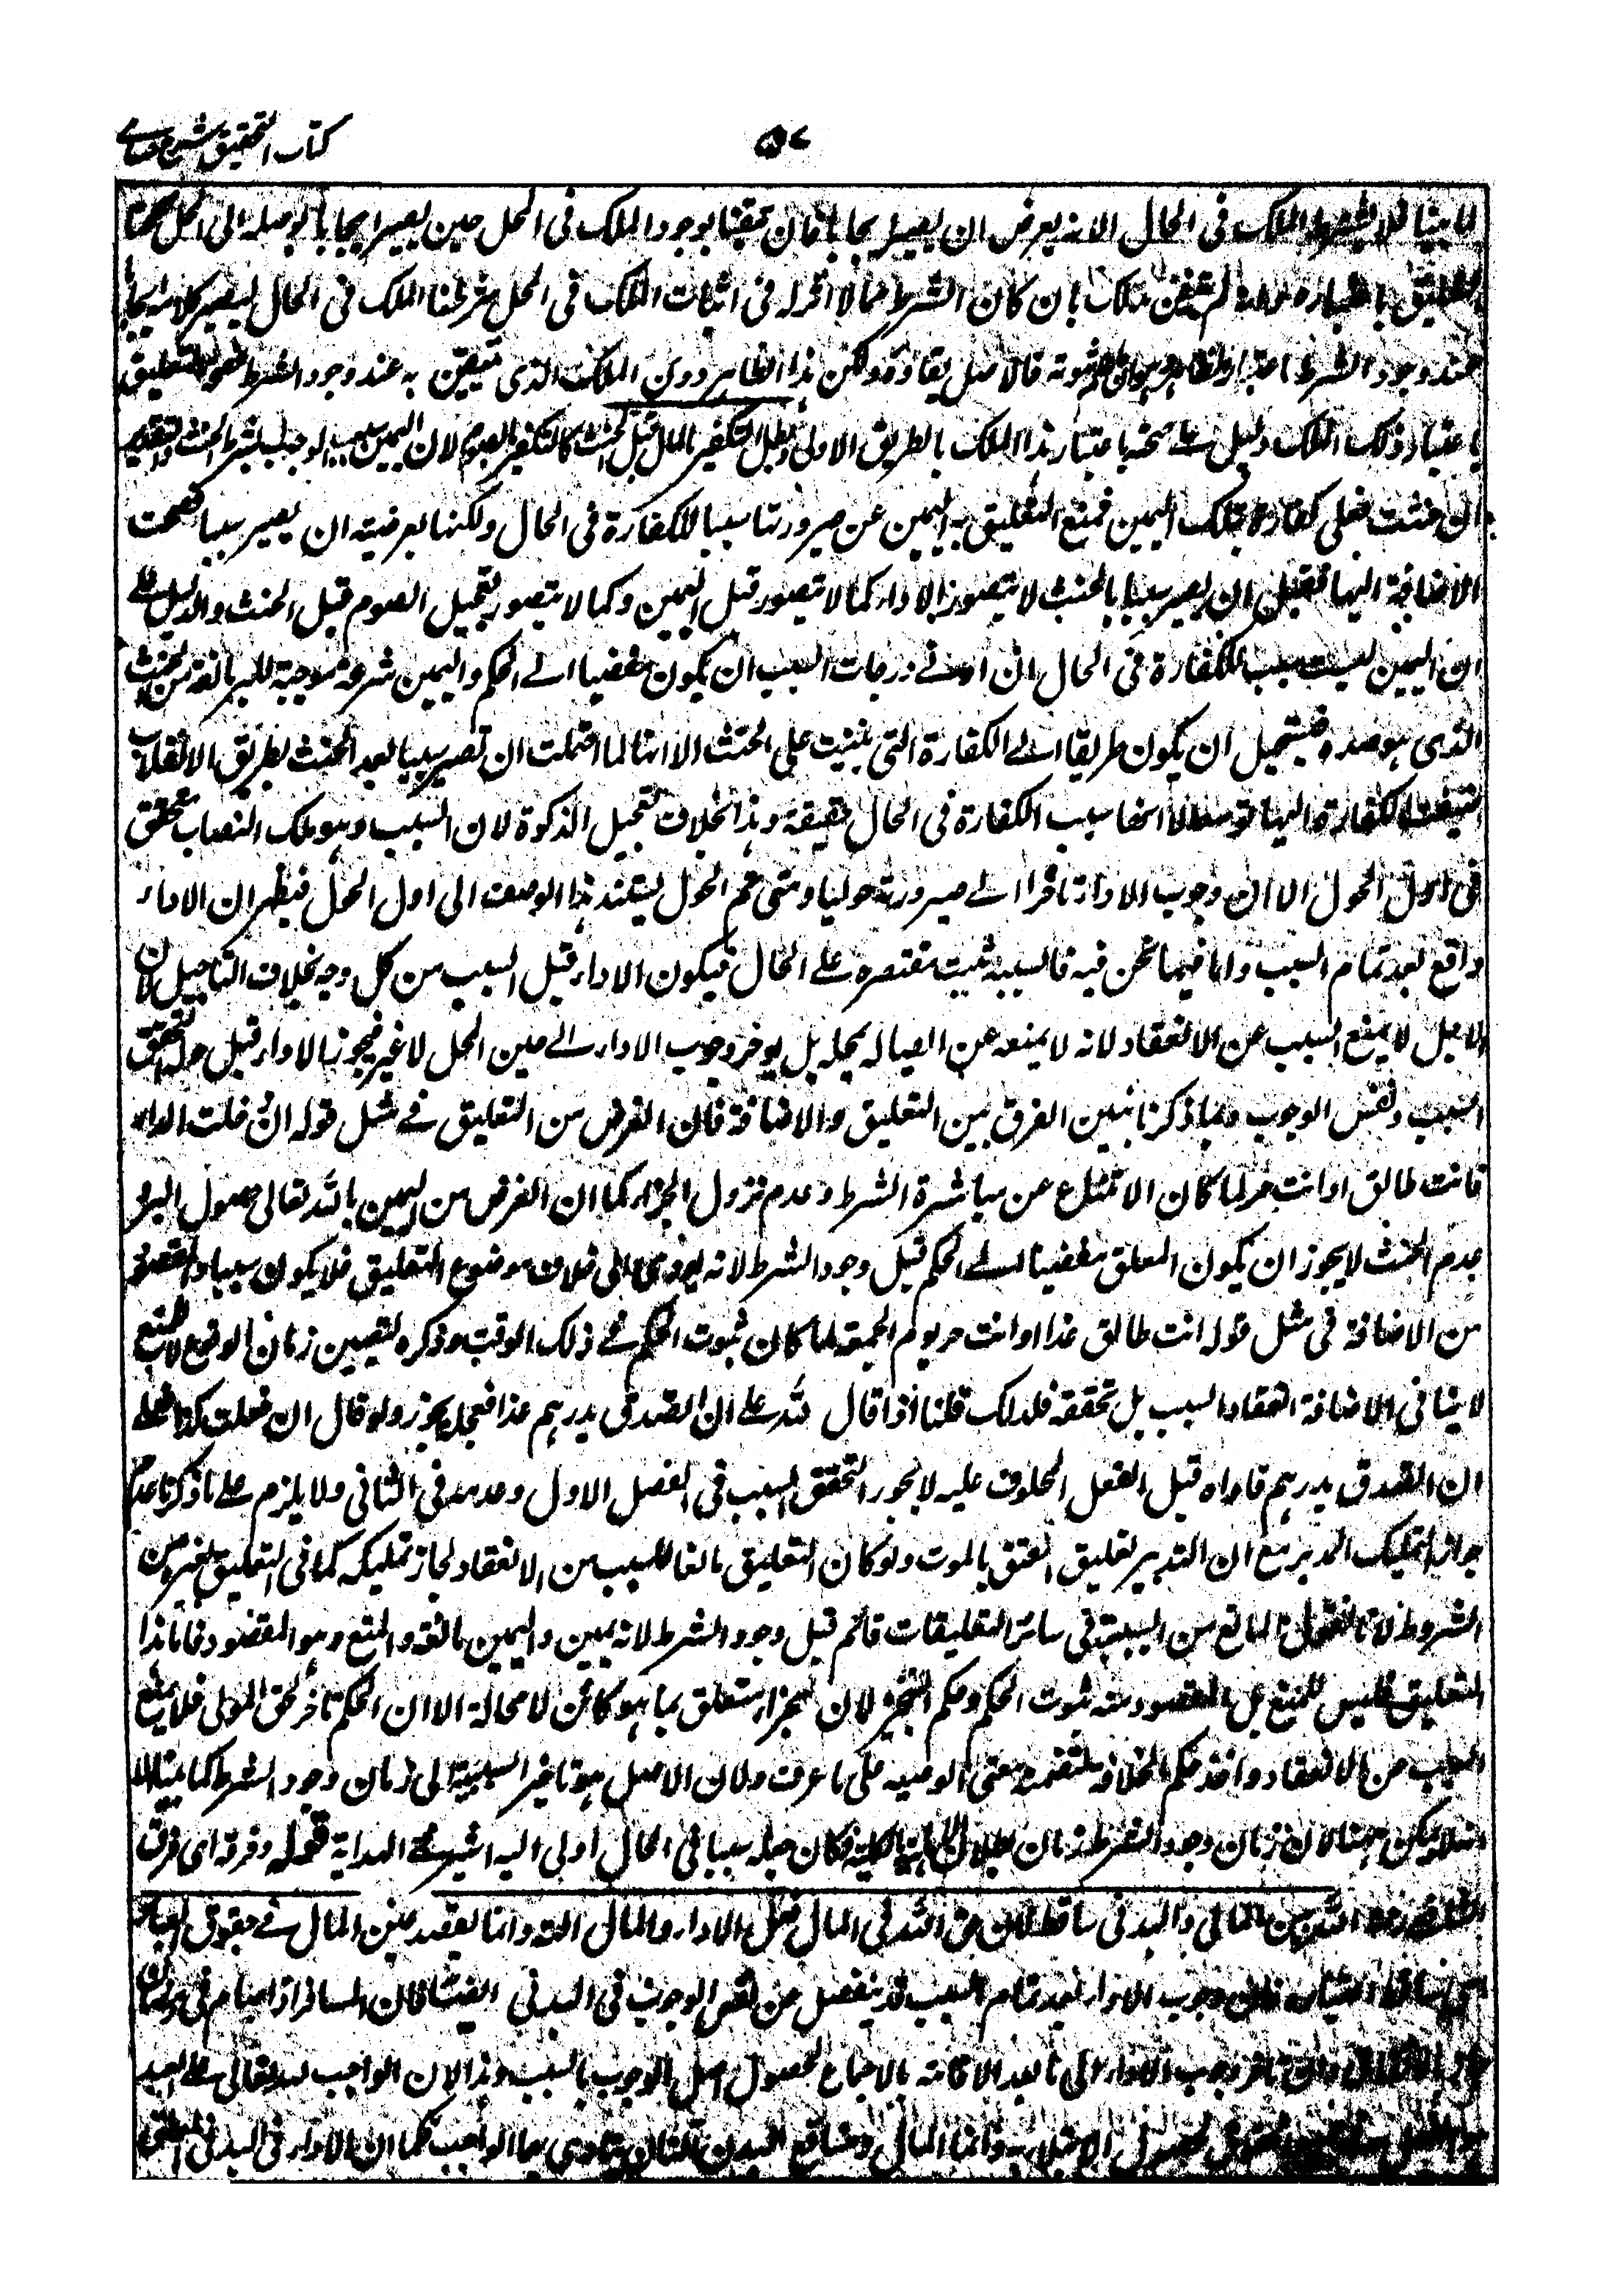 كتاب التحقيق شرح حسامے
لما بينا فلا يشترط الملك فى الحال الا انه يعرض ان يصير ايجابا فان تيقنا بوجود الملك فى المحل حين يصير ايجابا بوصله الى المحل صح
التعليق باعتباره وان لم نتيقن بذلك بان كان الشرط مما لا اثر له فى اثبات الملك فى المحل شرطنا الملك فى الحال ليصير كلامه ايجابا
عند وجود الشرط باعتبار الظاهر ثبوته فالاصل بقاؤه ولكن هذا الظاهر دون الملك الذى نتيقن به عند وجود الشرط فصحة التعليق
باعتبار ذلك الملك دليل على صحته باعتبار هذا الملك بالطريق الاولى وبطل التكفير بالمال قبل الحنث كالتكفير بالصوم لان اليمين سبب الوجوب بشرط الحنث والتقدير
ان حنثت فعلى كفارة بتلك اليمين فمنع التعليق به اليمين عن صيرورتها سببا للكفارة فى الحال ولكنها بعرضية ان يصير سببا فصحت
الاضافة اليها فقبل ان يصير سببا بالحنث لا يتصور الاداء كما لا يتصور قبل اليمين وكما لا يتصور تعجيل الصوم قبل الحنث والدليل على
ان اليمين ليست بسبب للكفارة فى الحال ان ادنے درجات السبب ان يكون مفضيا الے الحكم واليمين شرعت موجبة للبر مانعة من الحنث
الذى هو ضده فيستحيل ان يكون طريقا الے الكفارة التى بنيت على الحنث الا انها لما احتملت ان تصير سببا بعد الحنث بطريق الانقلاب
اضيفت الكفارة اليها توسعا لا انها سبب الكفارة فى الحال حقيقة وهذا بخلاف تعجيل الزكوة لان السبب وهو ملك النصاب متحقق
فى اول الحول الا ان وجوب الاداء تاخر الے صيرورته حوليا ومتى تم الحول يستند هذا الوصف الى اول الحول فيظهر ان الاداء
واقع بعد تمام السبب واما فيما نحن فيه فالسببية ثبت مقتصرة على الحال فيكون الاداء قبل السبب من كل وجه بخلاف التاجيل لان
الاجل لا يمنع السبب عن الانعقاد لانه لا يمنعه عن اتصاله بمحله بل يوخر وجوب الاداء الے حين المحل لا غير فيجوز الاداء قبل حوله لتحقق
السبب ونفس الوجوب وبما ذكرنا تبين الفرق بين التعليق والاضافة فان الغرض من التعليق فے مثل قوله ان دخلت الدار
فانت طالق او انت حر لما كان الامتناع عن مباشرة الشرط وعدم نزول الجزاء كما ان الغرض من اليمين بالله تعالى حصول البر و
عدم الحنث لا يجوز ان يكون المعلق مفضيا الے الحكم قبل وجود الشرط لانه يودى الى خلاف موضوع التعليق فلا يكون سببا والغرض
من الاضافة فى مثل قوله انت طالق غدا او انت حر يوم الجمعة لما كان ثبوت الحكم فے ذلك الوقت وذكره لتعيين زمان الوقوع لا للمنع
لا ينافى الاضافة انعقاد السبب بل تحققه فلذلك قلنا اذا قال لله على ان اتصدق بدرهم غدا فعجل يجوز ولو قال ان فعلت كذا فعلے
ان اتصدق بدرهم فاداه قبل الفعل المحلوف عليه لا يجوز لتحقق السبب فى الفصل الاول وعدمه فى الثانى ولا يلزم على ما ذكرنا عدم
جواز تمليك المدبر مع ان التدبير تعليق العتق بالموت ولو كان التعليق مانعا للسبب من الانعقاد لجاز تمليكه كما فى التعليق بغيره من
الشروط لانا نقول المانع من السببية فى سائر التعليقات قائم قبل وجود الشرط لانه يمين واليمين مانعة والمنع وهو المقصود فاما هذا
التعليق فليس للمنع بل المقصود منه ثبوت الحكم وحكم التنجيز لان الجزاء متعلق بما هو كائن لا محالة الا ان الحكم تاخر لحق المولى فلا يمنع
السبب من الانعقاد واخذ حكم الخلافة لتضمنه معنى الوصية على ما عرفت ولان الاصل هو تاخير السببية الى زمان وجود الشرط كما بينا الا
انه لا يمكن ههنا لان زمان وجود الشرط زمان بطلان الاهلية فكان جعله سببا فى الحال اولى اليه اشير فے الهداية قوله وفرقه اى فرق
الشافعى رحمه الله بين المالى والبدنى ساقط لان حق الله فى المال فعل الاداء والمال آلته وانما يقصد عين المال فے حقوق العباد
وجوب الاداء بعد تمام السبب قد ينفصل عن نفس الوجوب فى البدنى ايضا فان المسافر اذا صام فى رمضان
وجوب الاداء الى ما بعد الاقامة بالاجماع لحصول اصل الوجوب بالسبب وهذا لان الواجب لله تعالى على العبد
وانما المال ومنافع البدن آلتان يتادى بهما الواجب كما ان الاداء فى البدنى